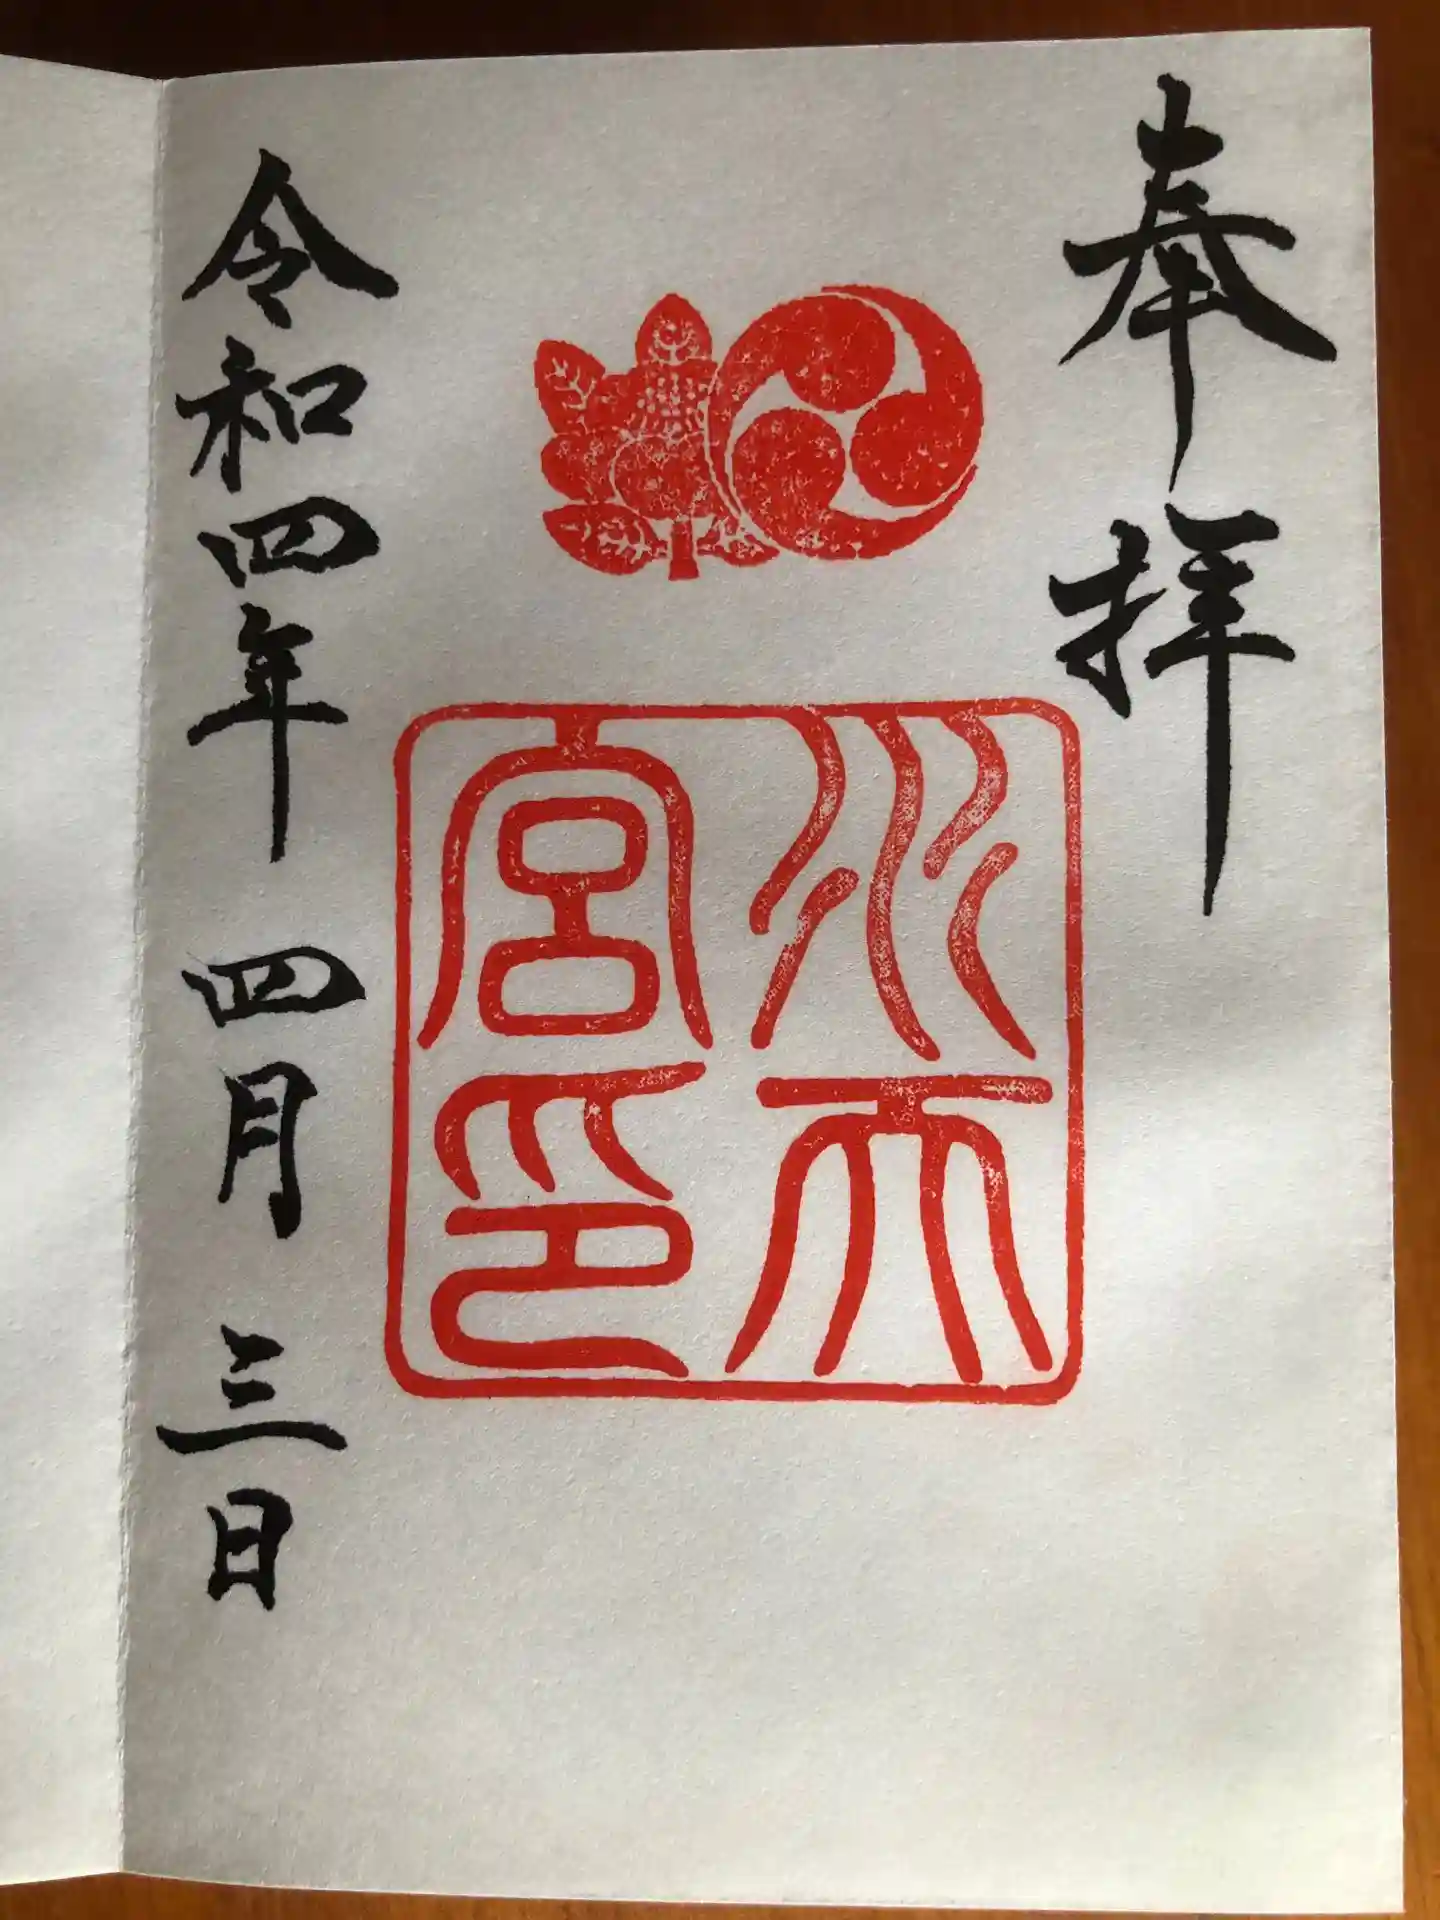 奉拝
水天
宮印
令和四年 四月 三日